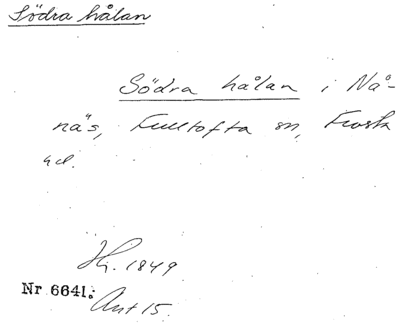 Södra hålan
Södra hålan i Nå-
näs, Fulltofta sn, Frosta
hd.
Hj. 1849
Nr 6641:
Ant 15.